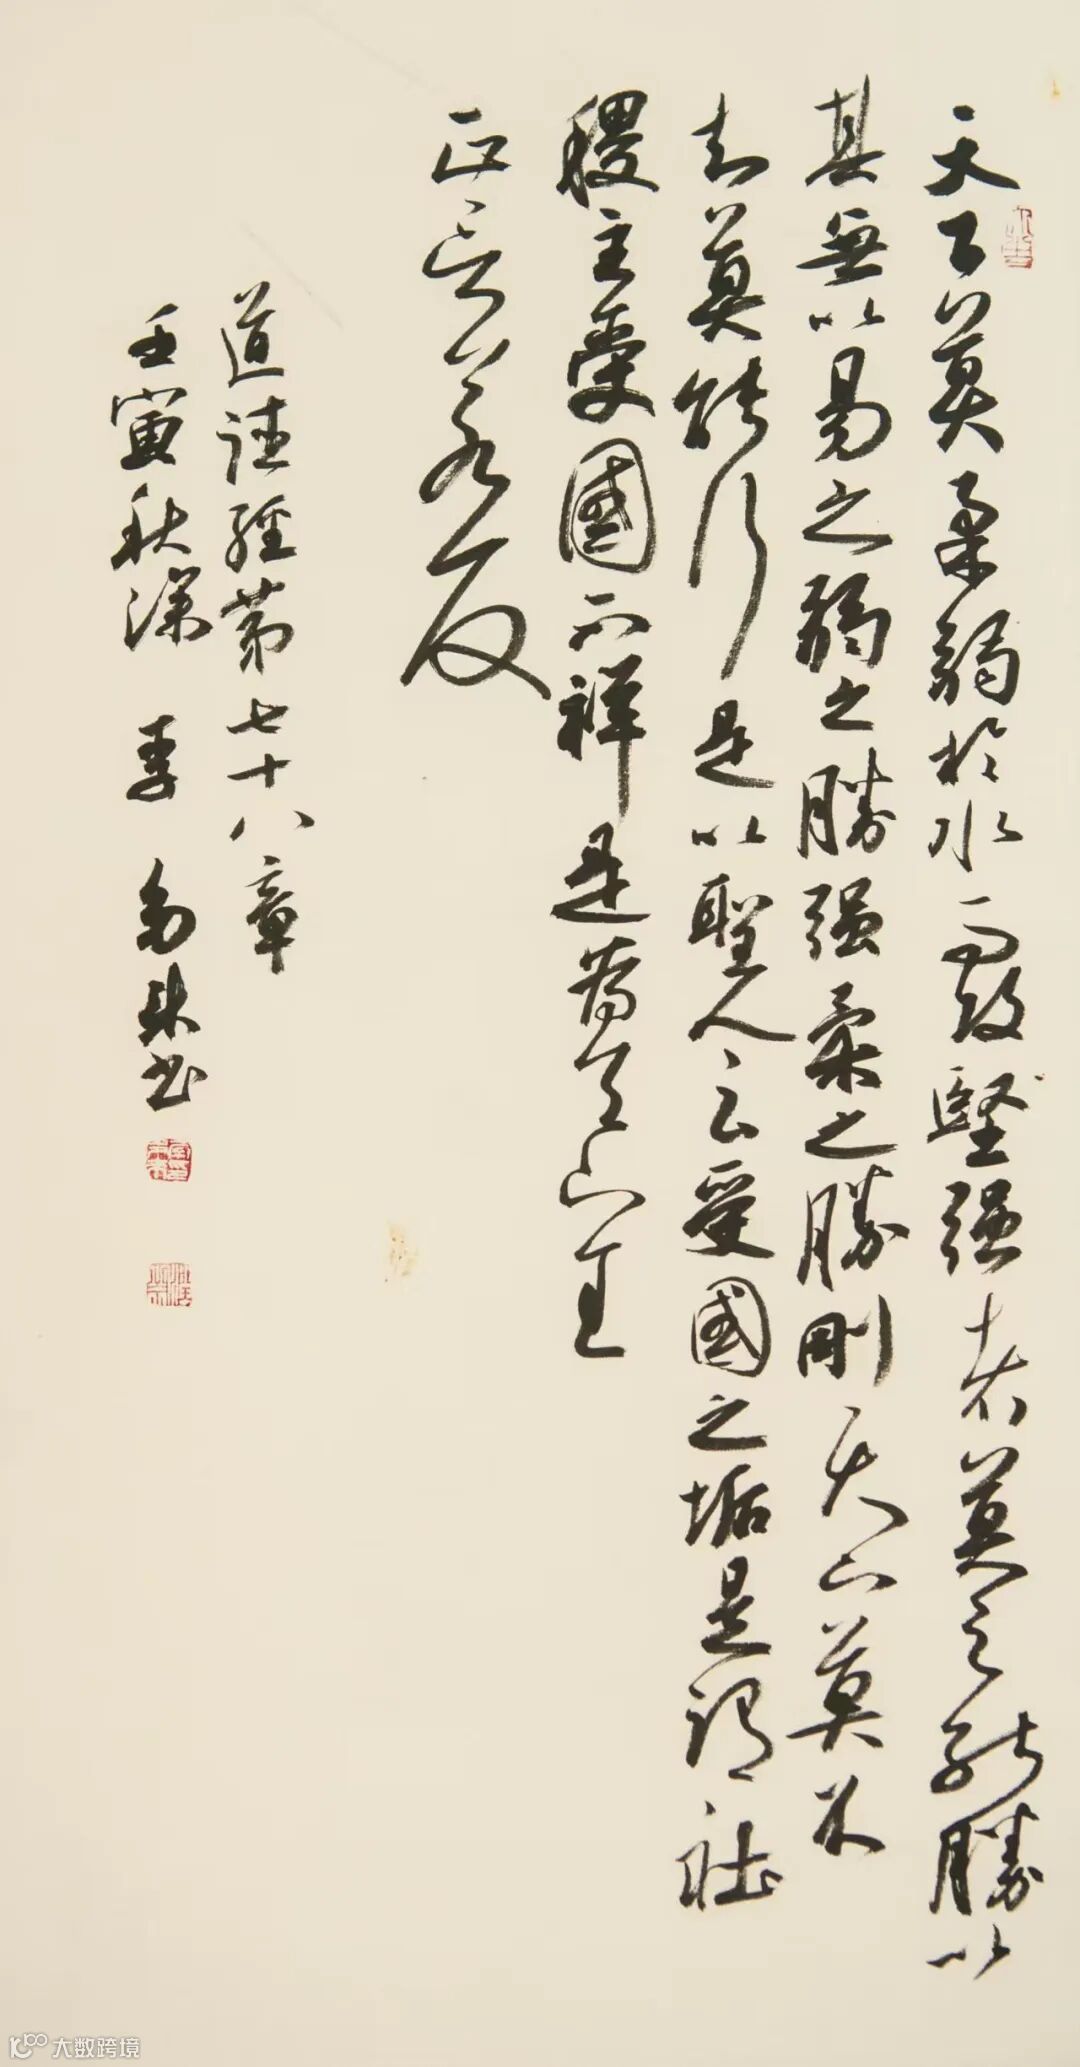 天下莫柔弱於水而攻堅强者莫之能勝以
其無以易之弱之勝强柔之勝剛天下莫不
知莫能行是以聖人云受國之垢是謂社
稷主受國不祥是為天下王
正言若反
道德經第七十八章
壬寅秋深 书
大数跨境